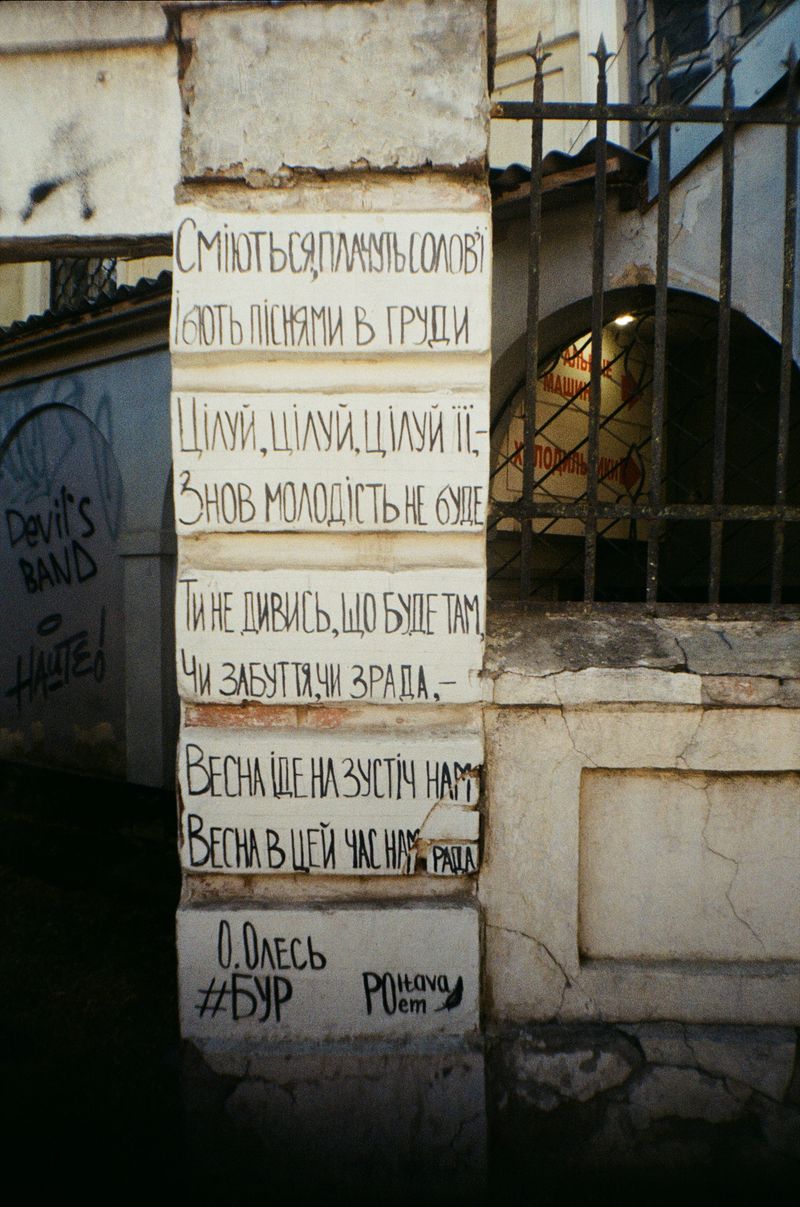 Сміються, плачуть солов'ї
І б'ють піснями в груди
Цілуй, цілуй, цілуй її,–
Знов молодість не буде
Ти не дивись, що буде там,
Чи забуття, чи зрада,–
Весна іде назустіч нам
Весна в цей час нам рада
О.Олесь
#БУР
POltava
POem
Devil's
BAND
HAUTE!
МАШИНИ
ХОЛОДИЛЬНИКИ